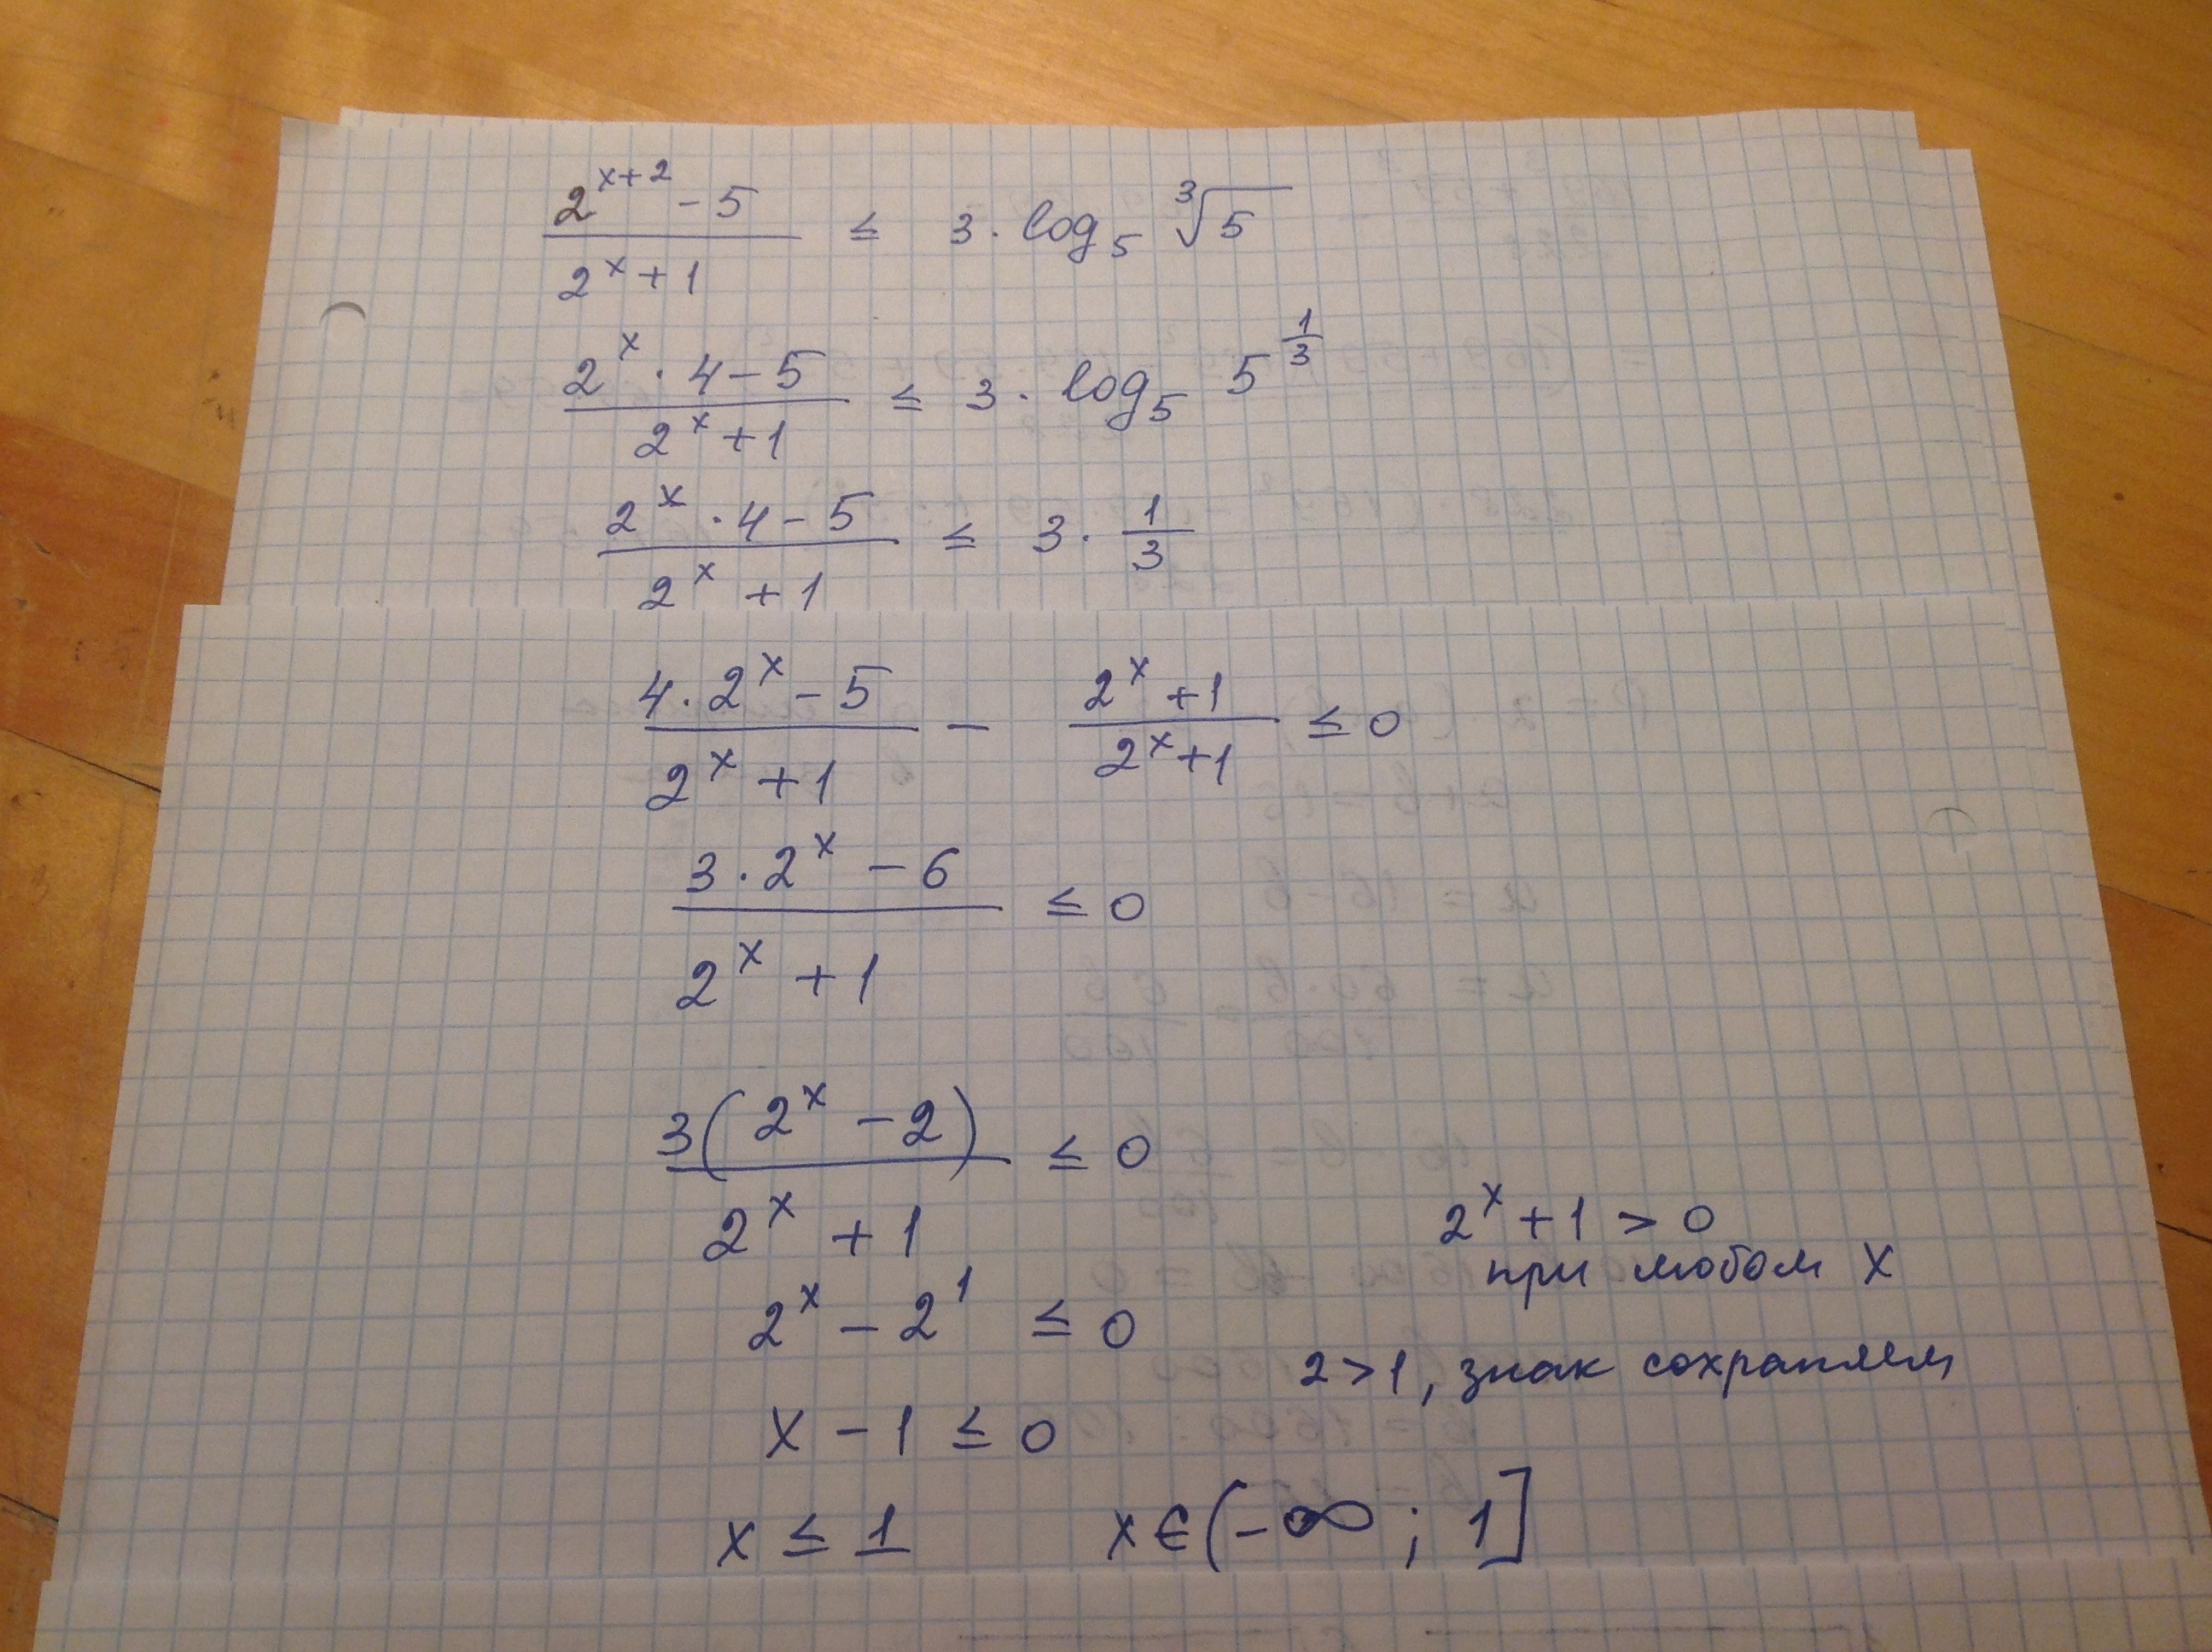 (2^(x+2) - 5)/(2^x + 1) ≤ 3 · log₅ ∛5
(2^x · 4 - 5)/(2^x + 1) ≤ 3 · log₅ 5^(1/3)
(2^x · 4 - 5)/(2^x + 1) ≤ 3 · 1/3
(4 · 2^x - 5)/(2^x + 1) - (2^x + 1)/(2^x + 1) ≤ 0
(3 · 2^x - 6)/(2^x + 1) ≤ 0
3(2^x - 2)/(2^x + 1) ≤ 0
2^x + 1 > 0
при любом x
2^x - 2^1 ≤ 0
2 > 1, знак сохраняем
x - 1 ≤ 0
x ≤ 1 x ∈ (-∞ ; 1]